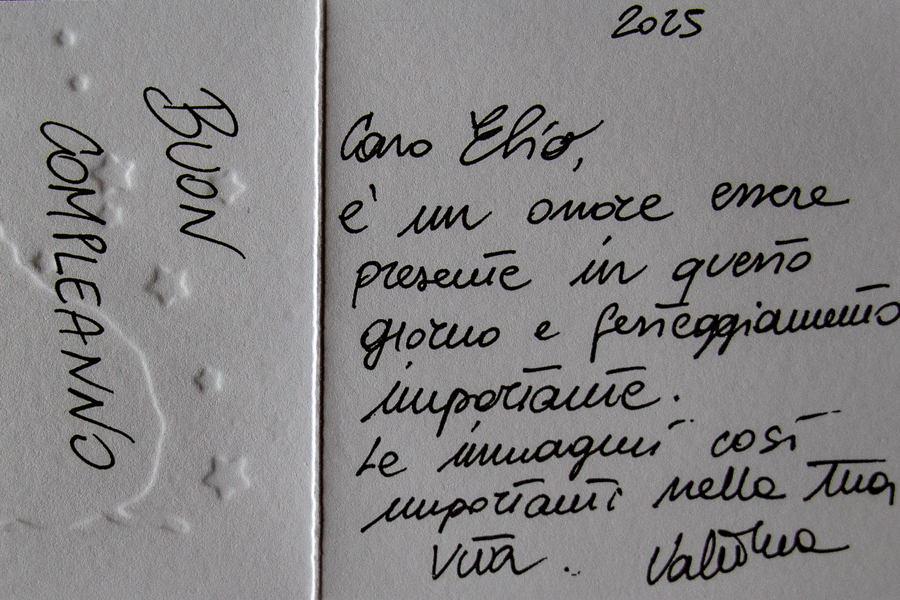 BUON
COMPLEANNO
2025
Caro Elio,
è un onore essere
presente in questo
giorno e festeggiamento
importante.
Le immagini così
importanti nella tua
vita. Valentina